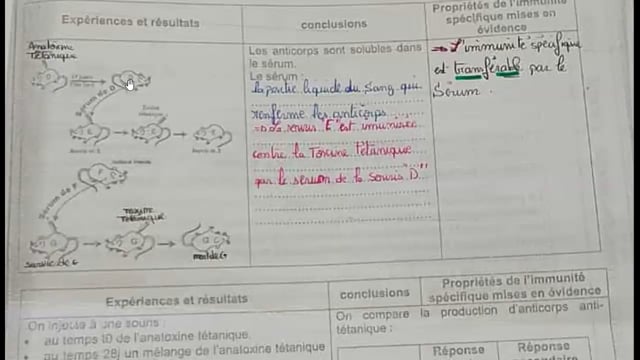 Expériences et résultats
conclusions
Propriétés de l'immunité
spécifique mises en
évidence
Anatoxine
Tétanique
Sérum de D
Toxine
tétanique
Survie de E
Survie de E
Sérum de F
Toxine
Tétanique
Survie de G
mort de G
Les anticorps sont solubles dans
le sérum.
Le sérum :
la partie liquide du sang qui
renferme les anticorps
la souris "E" est immunisée
contre la Toxine Tétanique
par le sérum de la souris "D"
→ L'immunité spécifique
est transférable par le
Sérum.
Expériences et résultats
conclusions
Propriétés de l'immunité
spécifique mises en évidence
On injecte à une souris :
• au temps t0 de l'anatoxine tétanique.
• au temps 28j un mélange de l'anatoxine tétanique
On compare la production d'anticorps anti-
tétanique :
Réponse
Réponse
secondaire